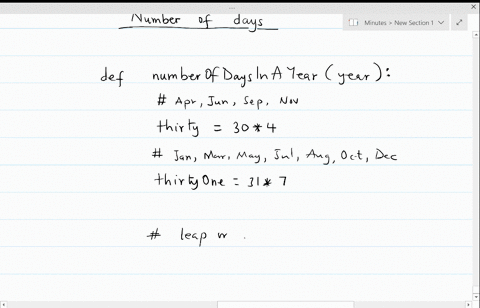 Number of days
Minutes > New Section 1
def numberOfDaysInAYear (year):
# Apr, Jun, Sep, Nov
thirty = 30*4
# Jan, Mar, May, Jul, Aug, Oct, Dec
thirtyOne = 31*7
# leap